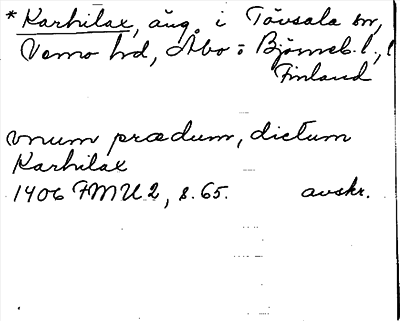 * Karhilax, äng i Tövsala sn,
Vemo hd, Åbo o Björneb. l.,
Finland
vnum prædum, dictum
Karhilax
1406 FMU 2, s. 65. avskr.